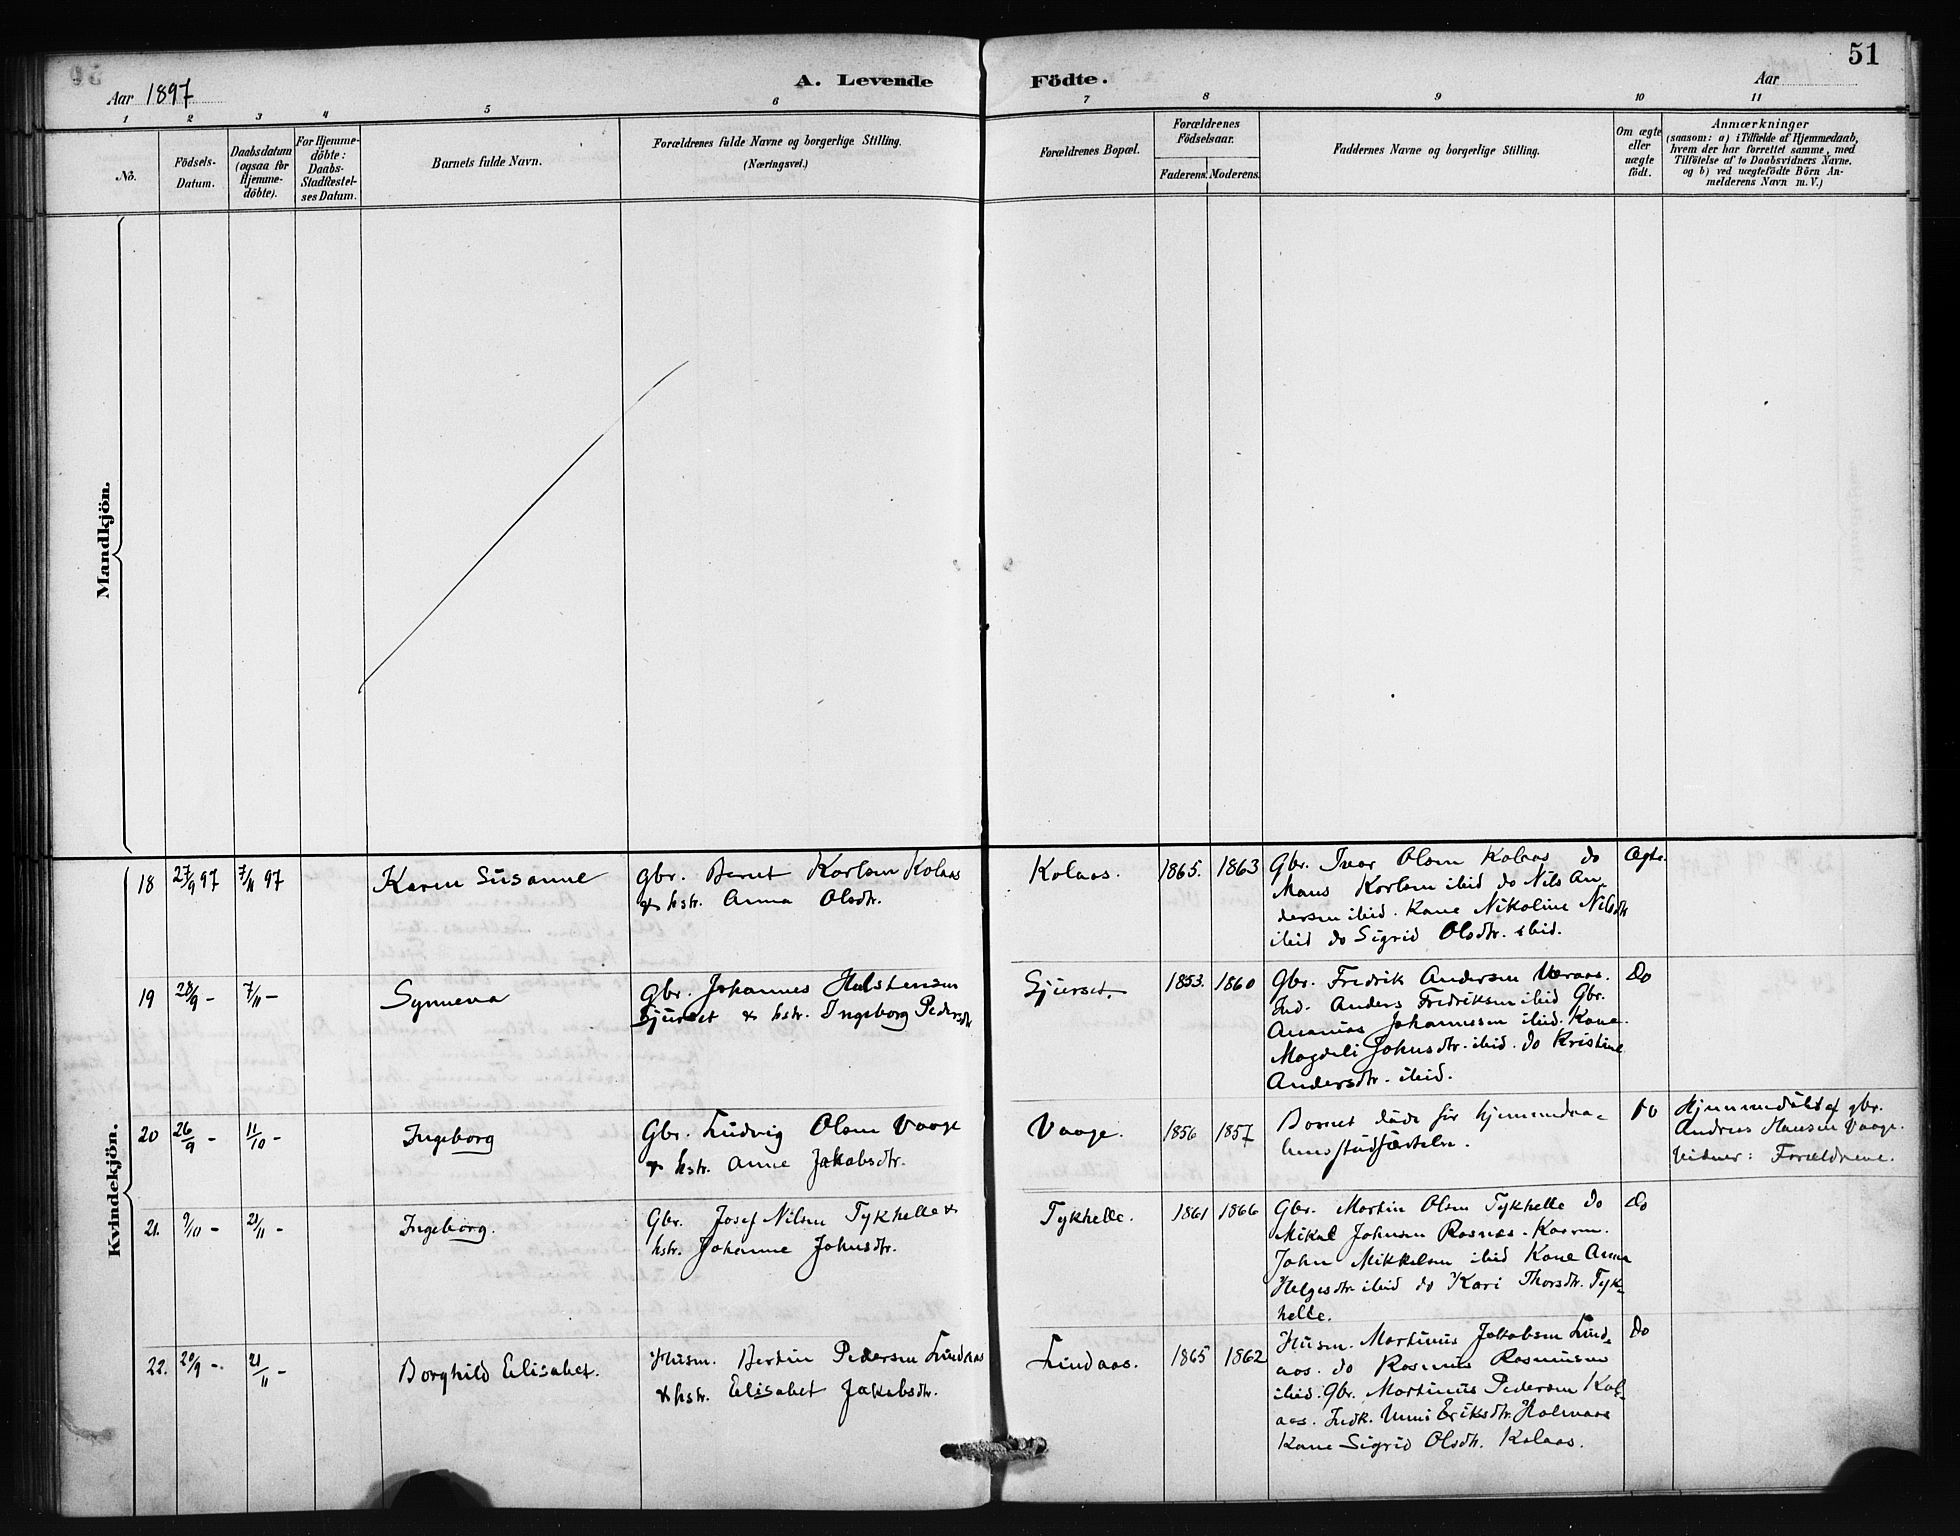 51
Aar 1897
A. Levende Födte.
Aar
1 2 3 4 5 6 7 8 9 10 11
No.
Födsels-
Datum.
Daabsdatum
(ogsaa for
Hjemme-
döbte).
For Hjemme-
döbte:
Daabs-
Stadfæstel-
ses Datum.
Barnets fulde Navn.
Forældrenes fulde Navne og borgerlige Stilling.
(Næringsvei.)
Forældrenes Bopæl.
Forældrenes
Födselsaar.
Faderens. Moderens.
Faddernes Navne og borgerlige Stilling.
Om ægte
eller
uægte
födt.
Anmærkninger
(saasom: a) i Tilfælde af Hjemmedaab,
hvem der har forrettet samme, med
Tilföielse af to Daabsvidners Navne.
og b) ved uægtefödte Börn An-
melderens Navn m. V.)
Mandkjön.
Kvindekjön.
18 27/9 97 7/11 97 Karen Susanne
Gbr. Bernt Karlsen Kolaas
& hstr. Anna Olsdtr.
Kolaas. 1865. 1863
Gbr. Ivar Olsen Kolaas do
Mans Karlsen ibid do Nils An-
dersen ibid. Kone Nikoline Nilsdtr
ibid do Sigrid Olsdtr. ibid.
Ægte.
19 28/9 - 7/11 - Synneva
Gbr. Johannes Halstensen
Gjerset & hstr. Ingeborg Pedersdtr
Gjerset. 1853. 1860
Gbr. Fredrik Andersen
Ind. Anders Fredriksen ibid Gbr.
Ananias Johannesen ibid. Kone
Magdeli Johnsdtr. ibid. do Kristine
Andersdtr. ibid.
Do
20 26/9 - 11/10 - Ingeborg
Gbr. Ludvig Olsen Vaage
& hstr. Anne Jakobsdtr.
Vaage. 1856 1857
Barnet døde før hjemmedaa-
bens stadfæstelse.
Do
Hjemmedøbt af gbr.
Andreas Hansen Vaage.
Vidner: Forældrene.
21. 9/10 - 21/11 - Ingeborg.
Gbr. Josef Nilsen Tykhelle &
hstr. Johanne Johnsdtr.
Tykhelle. 1861 1866
Gbr. Martin Olsen Tykhelle do
Mikal Johnsen Rosnæs.
John Mikkelsen ibid Kone Anna
Helgesdtr. ibid do Kari Thorsdtr. Tyk-
helle.
Do
22. 20/9 -. 21/11 - Borghild Elisabet.
Husm. Bertin Pedersen Lindaas
& hstr. Elisabet Jakobsdtr.
Lindaas. 1865 1862
Husm. Martinus Jakobsen Lind-
aas. do Rasmus Rasmussen
ibid. Gbr. Martinus Pedersen Kol-
aas. Indk. Unni Eriksdtr. Holmaas
Kone Sigrid Olsdtr. Kolaas.
Do